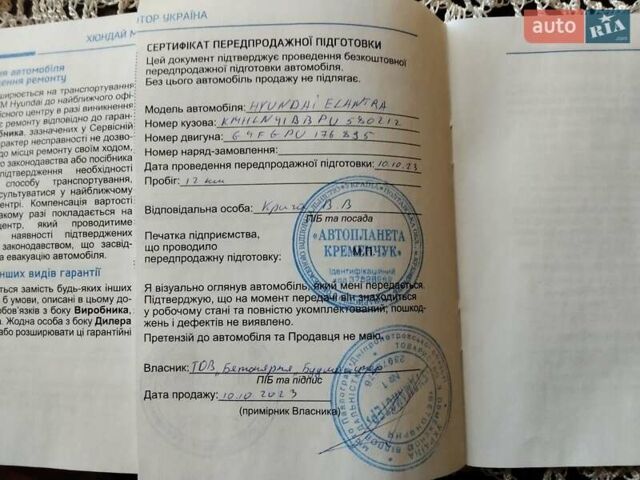 auto RIA
.com
ТОР УКРАЇНА
ХЮНДАЙ М
автомобіля
ення ремонту
ширюється на транспортування
М Hyundai до найближчого офі-
існого центру в разі виникнення
ремонту відповідно до гаран-
бника, зазначених у Сервісній
арактер несправності не дозво-
до місця ремонту своїм ходом,
о законодавства або посібника
підтвердження необхідності
способу транспортування,
сультуватися у найближчому
ентрі. Компенсація вартості
акому разі покладається на
центр, який проводитиме
наявності підтверджених
законодавством, що засвід-
а евакуацію автомобіля.
нших видів гарантії
ться замість будь-яких інших
б умови, описані в цьому до-
бов'язків з боку Виробника,
. Жодна особа з боку Дилера
або розширювати ці гарантійні
СЕРТИФІКАТ ПЕРЕДПРОДАЖНОЇ ПІДГОТОВКИ
Цей документ підтверджує проведення безкоштовної
передпродажної підготовки автомобіля.
Без цього автомобіль продажу не підлягає.
Модель автомобіля: HYUNDAI ELANTRA
Номер кузова: KMHLN41BBPU580212
Номер двигуна: G4FGPU176835
Номер наряд-замовлення:
Дата проведення передпродажної підготовки: 10.10.23
Пробіг: 12 км
Відповідальна особа: В.В
ПІБ та посада
Печатка підприємства,
що проводило
передпродажну підготовку:
М.П.
«АВТОПЛАНЕТА
КРЕМЕНЧУК»
Ідентифікаційний
Я візуально оглянув автомобіль, який мені передається.
Підтверджую, що на момент передачі він знаходиться
у робочому стані та повністю укомплектований; пошкод-
жень і дефектів не виявлено.
Претензій до автомобіля та Продавця не маю.
Власник: ТОВ
ПІБ та підпис
Дата продажу: 10.10.2023
(примірник Власника)